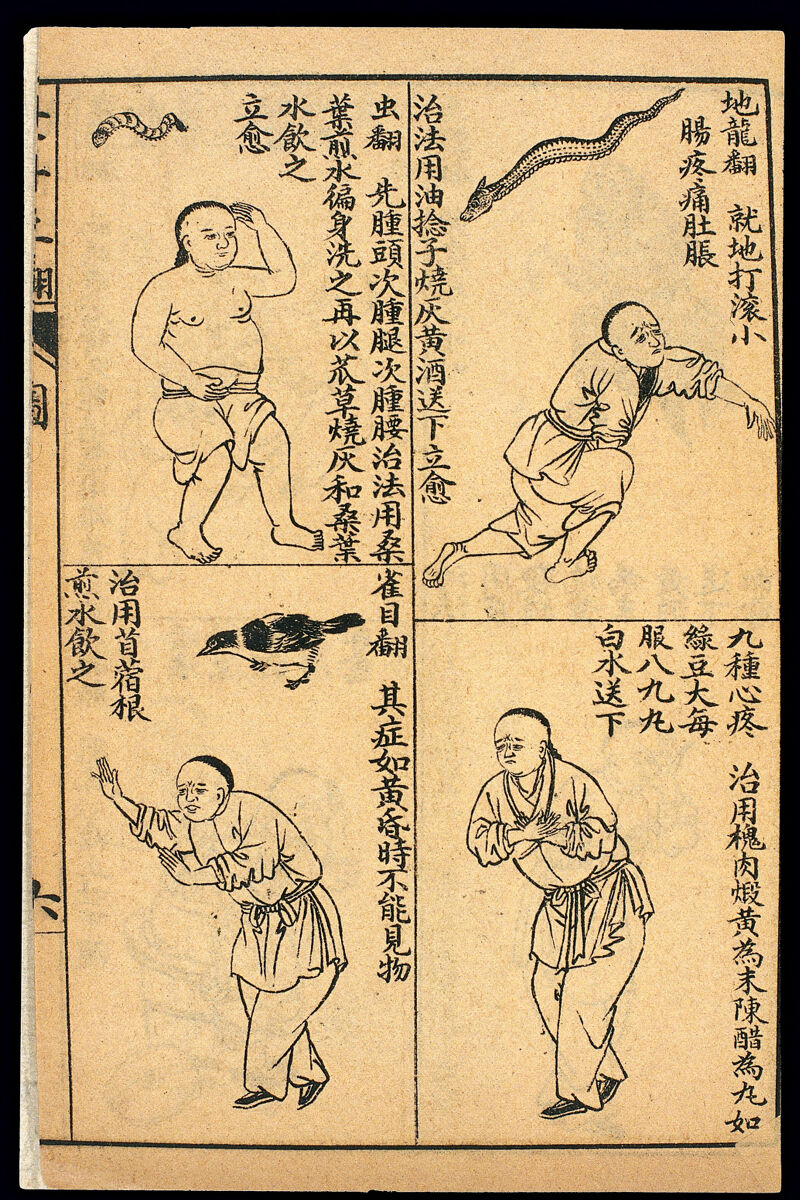 地龍翻　就地打滾小
腸疼痛肚脹
治法用油捻子燒灰黃酒送下立愈
九種心疼　治用槐肉煅黃為末陳醋為丸如
綠豆大每
服八九丸
白水送下
虫翻　先腫頭次腫腿次腫腰治法用桑
葉煎水徧身洗之再以茶草燒灰和桑葉
水飲之
立愈
雀目翻　其症如黃昏時不能見物
治用苜蓿根
煎水飲之
翻
圖
六